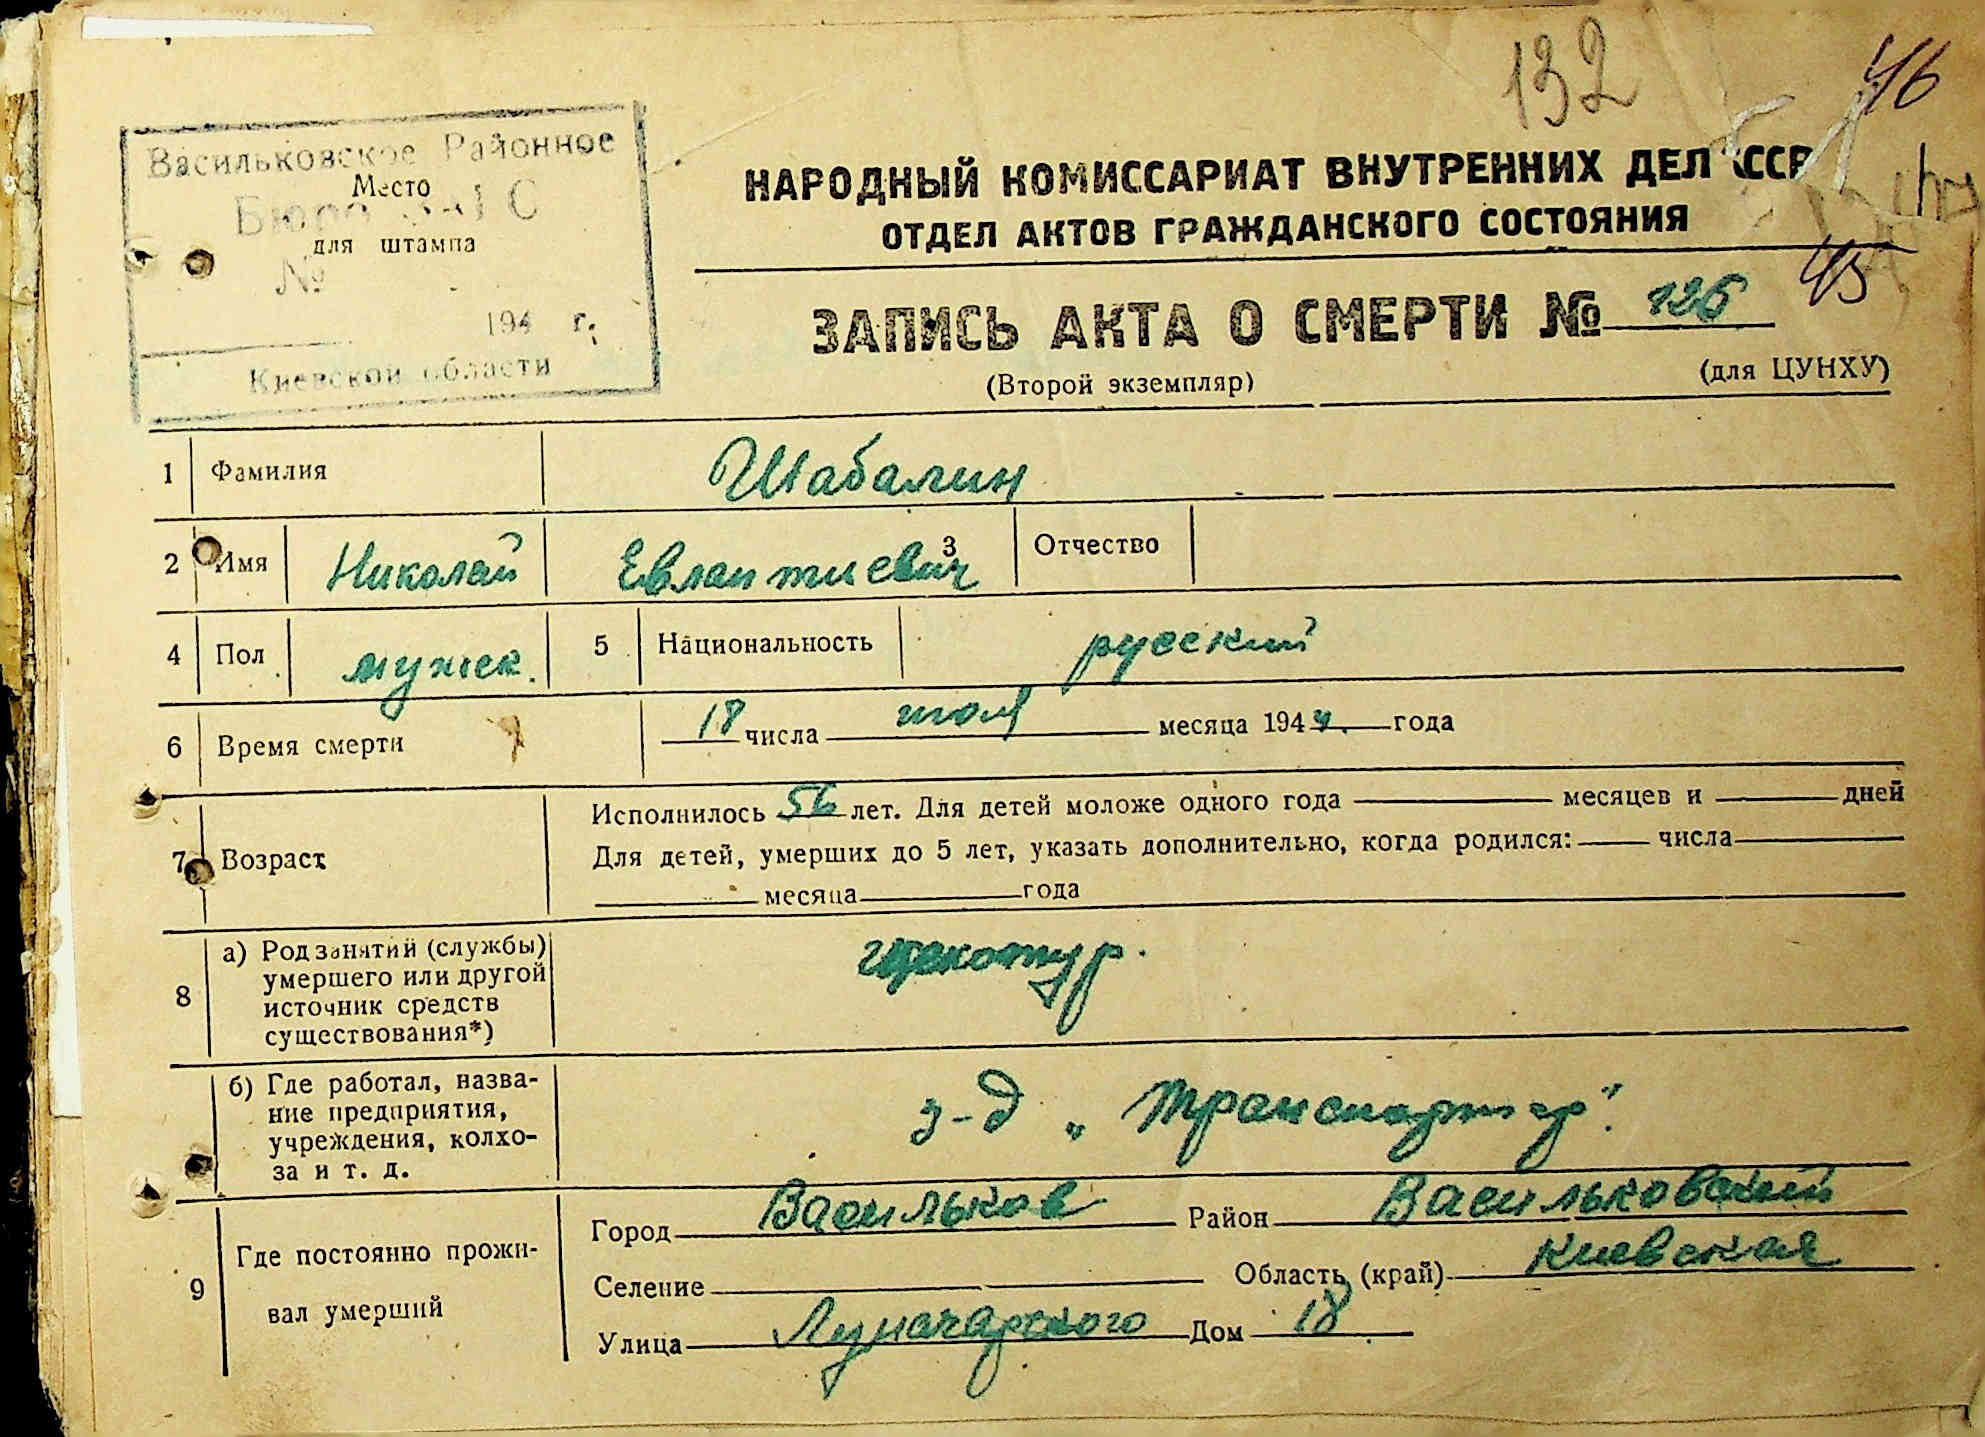 132
46
Васильковское Районное
Место
Бюро
для штампа
№
194 г.
Киевской области
НАРОДНЫЙ КОМИССАРИАТ ВНУТРЕННИХ ДЕЛ СССР
ОТДЕЛ АКТОВ ГРАЖДАНСКОГО СОСТОЯНИЯ
45
ЗАПИСЬ АКТА О СМЕРТИ № 126
(Второй экземпляр)
(для ЦУНХУ)
1 Фамилия Шабалин
2 Имя Николай Евлантиевич 3 Отчество
4 Пол мужск. 5 Национальность русский
6 Время смерти 18 числа июля месяца 1944. года
7 Возраст
Исполнилось 56 лет. Для детей моложе одного года месяцев и дней
Для детей, умерших до 5 лет, указать дополнительно, когда родился: числа
месяца года
8 а) Род занятий (службы)
умершего или другой
источник средств
существования*)
щекотур.
б) Где работал, назва-
ние предприятия,
учреждения, колхо-
за и т. д.
з-д „Транспортер".
9 Где постоянно прожи-
вал умерший
Город Васильков Район Васильковский
Селение Область (край) Киевская
Улица Луначарского Дом 18